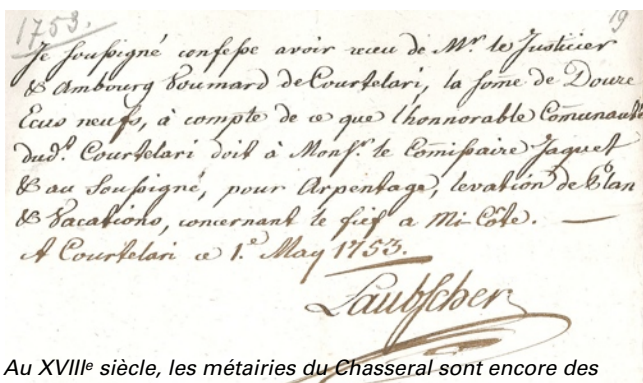 1753.
19
Je soussigné confesse avoir receu de Mr. le Justicier
& Ambourg Voumard de Courtelari, la some de Douze
Ecus neufs, à compte de ce que l'honnorable Comunauté
dud.t Courtelari doit à Monsr. le Comissaire Jaquet
& au Soussigné, pour Arpentage, levation de Plan
& Vacations, concernant le fief a Mi-Côte. —
A Courtelari ce 1.e May 1753.
Laubscher
Au XVIIIe siècle, les métairies du Chasseral sont encore des